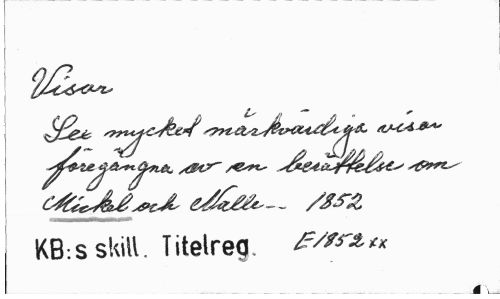 Visor
Sex mycket märkvärdiga visor
föregångna av en berättelse om
Mickel och Nalle-- 1852
KB:s skill. Titelreg. E1852xx